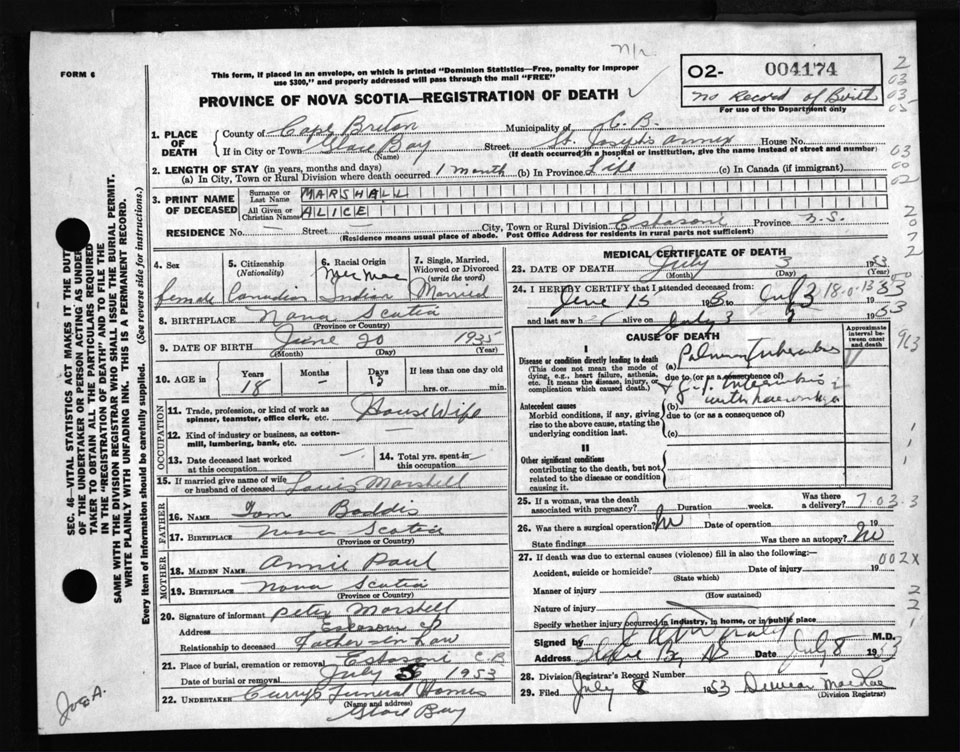 FORM 6
This form, if placed in an envelope, on which is printed "Dominion Statistics—Free, penalty for improper
use $300," and properly addressed will pass through the mail "FREE"
PROVINCE OF NOVA SCOTIA—REGISTRATION OF DEATH
02- 004174
No Record of Birth
For use of the Department only
1. PLACE OF DEATH
County of Cape Breton Municipality of C. B.
If in City or Town Glace Bay Street St. Joseph's Annex House No.
(Name) (If death occurred in a hospital or institution, give the name instead of street and number)
2. LENGTH OF STAY (in years, months and days)
(a) In City, Town or Rural Division where death occurred 1 month (b) In Province Life (c) In Canada (if immigrant)
3. PRINT NAME OF DECEASED
Surname or Last Name MARSHALL
All Given or Christian Names ALICE
RESIDENCE No. — Street — City, Town or Rural Division Eskasoni Province N.S.
(Residence means usual place of abode. Post Office Address for residents in rural parts not sufficient)
4. Sex female
5. Citizenship (Nationality) Canadian
6. Racial Origin Mic Mac Indian
7. Single, Married, Widowed or Divorced (write the word) Married
8. BIRTHPLACE Nova Scotia
(Province or Country)
9. DATE OF BIRTH June 20 1935
(Month) (Day) (Year)
10. AGE in Years 18 Months — Days 13 If less than one day old
hrs. or min.
OCCUPATION
11. Trade, profession, or kind of work as spinner, teamster, office clerk, etc. House Wife
12. Kind of industry or business, as cotton-mill, lumbering, bank, etc. —
13. Date deceased last worked at this occupation —
14. Total yrs. spent in this occupation —
15. If married give name of wife or husband of deceased Louis Marshell
FATHER
16. NAME Tom Baddis
17. BIRTHPLACE Nova Scotia
(Province or Country)
MOTHER
18. MAIDEN NAME Annie Paul
19. BIRTHPLACE Nova Scotia
(Province or Country)
20. Signature of informant Peter Marshell
Address Eskasoni CB
Relationship to deceased Father in Law
21. Place of burial, cremation or removal Eskasoni C.B.
Date of burial or removal July 5 1953
22. UNDERTAKER Curry's Funeral Homes
(Name and address)
Glace Bay
MEDICAL CERTIFICATE OF DEATH
23. DATE OF DEATH July 3 1953
(Month) (Day) (Year)
24. I HEREBY CERTIFY that I attended deceased from:
June 15 53 to July 3 1953
and last saw h alive on July 3 53
CAUSE OF DEATH
Approximate interval between onset and death
I
Disease or condition directly leading to death
(This does not mean the mode of dying, e.g., heart failure, asthenia, etc. It means the disease, injury, or complication which caused death.)
(a) Pulmonary Tuberculosis
due to (or as a consequence of)
Antecedent causes
Morbid conditions, if any, giving rise to the above cause, stating the underlying condition last.
(b) with haemorrhage
due to (or as a consequence of)
(c)
II
Other significant conditions
contributing to the death, but not related to the disease or condition causing it.
25. If a woman, was the death associated with pregnancy? Duration weeks. Was there a delivery?
7.03.3
26. Was there a surgical operation? No Date of operation 19
State findings Was there an autopsy? No
27. If death was due to external causes (violence) fill in also the following:
Accident, suicide or homicide? Date of injury 19
(State which)
002X
Manner of injury
(How sustained)
Nature of injury
Specify whether injury occurred in industry, in home, or in public place
Signed by M.D.
Address Glace Bay NS Date July 8 1953
28. Division Registrar's Record Number
29. Filed July 8 1953
(Division Registrar)
SEC. 46—VITAL STATISTICS ACT MAKES IT THE DUTY
OF THE UNDERTAKER OR PERSON ACTING AS UNDER-
TAKER TO OBTAIN ALL THE PARTICULARS REQUIRED
IN THE "REGISTRATION OF DEATH" AND TO FILE THE
SAME WITH THE DIVISION REGISTRAR WHO SHALL ISSUE THE BURIAL PERMIT.
WRITE PLAINLY WITH UNFADING INK. THIS IS A PERMANENT RECORD.
Every item of information should be carefully supplied. (See reverse side for instructions.)